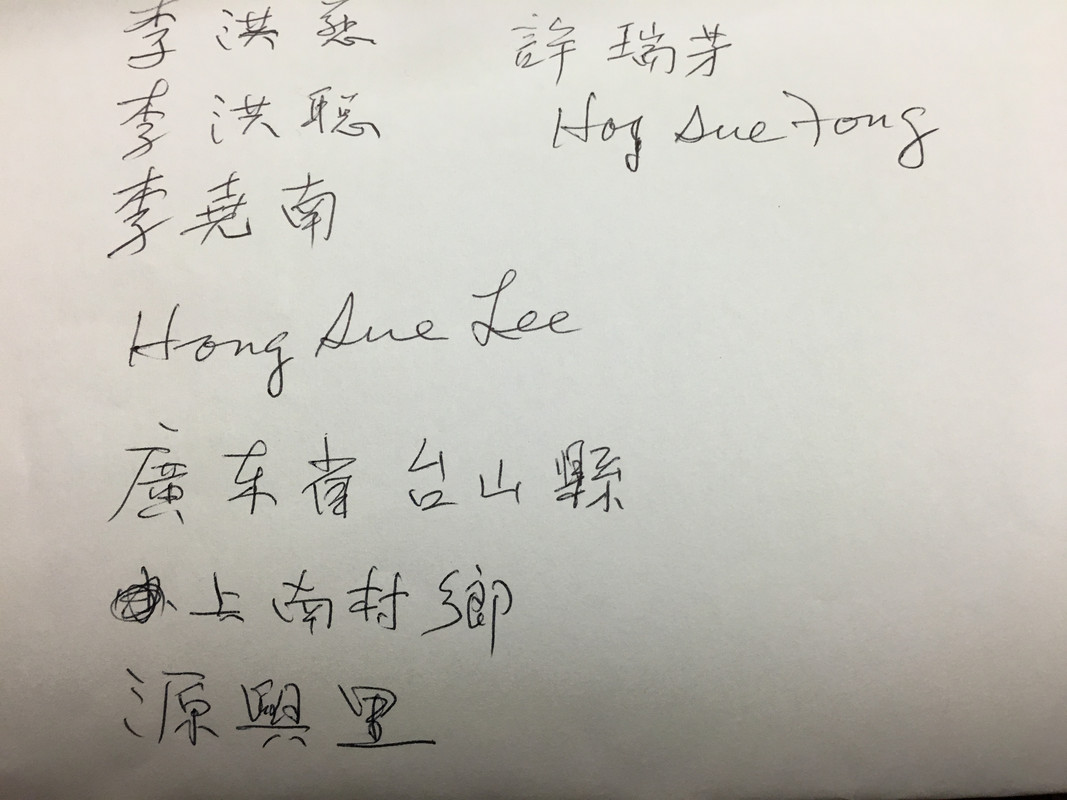 李洪慈
李洪聪
李堯南
許瑞芽
Hog Sue Fong
Hong Sue Lee
廣东省台山縣
上南村鄉
源興里